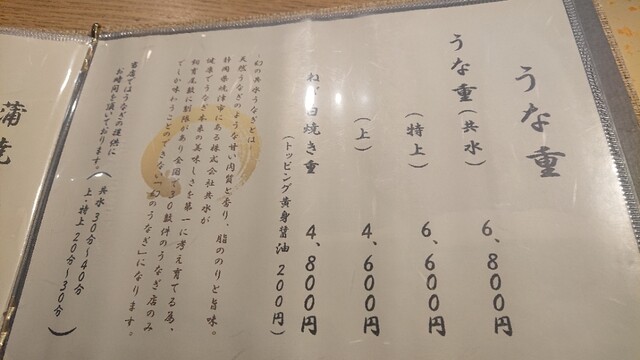 うな重
うな重(共水) 6、800円
(特上) 6、600円
(上) 4、600円
ねぎ白焼き重 4、800円
(トッピング黄身醤油 200円)
幻の共水うなぎとは
天然うなぎのような甘い肉質と香り、脂ののりと旨味。
静岡県焼津市にある株式会社共水が
健康でうなぎ本来の美味しさを第一に考え育てる為、
飼育尾数に制限があり全国で30数件のうなぎ店のみ
でしか味わうことのできない「幻のうなぎ」になります。
当店ではうなぎの提供に
お時間を頂いております。
(共水 30分〜40分
上・特上 20分〜30分)
蒲焼